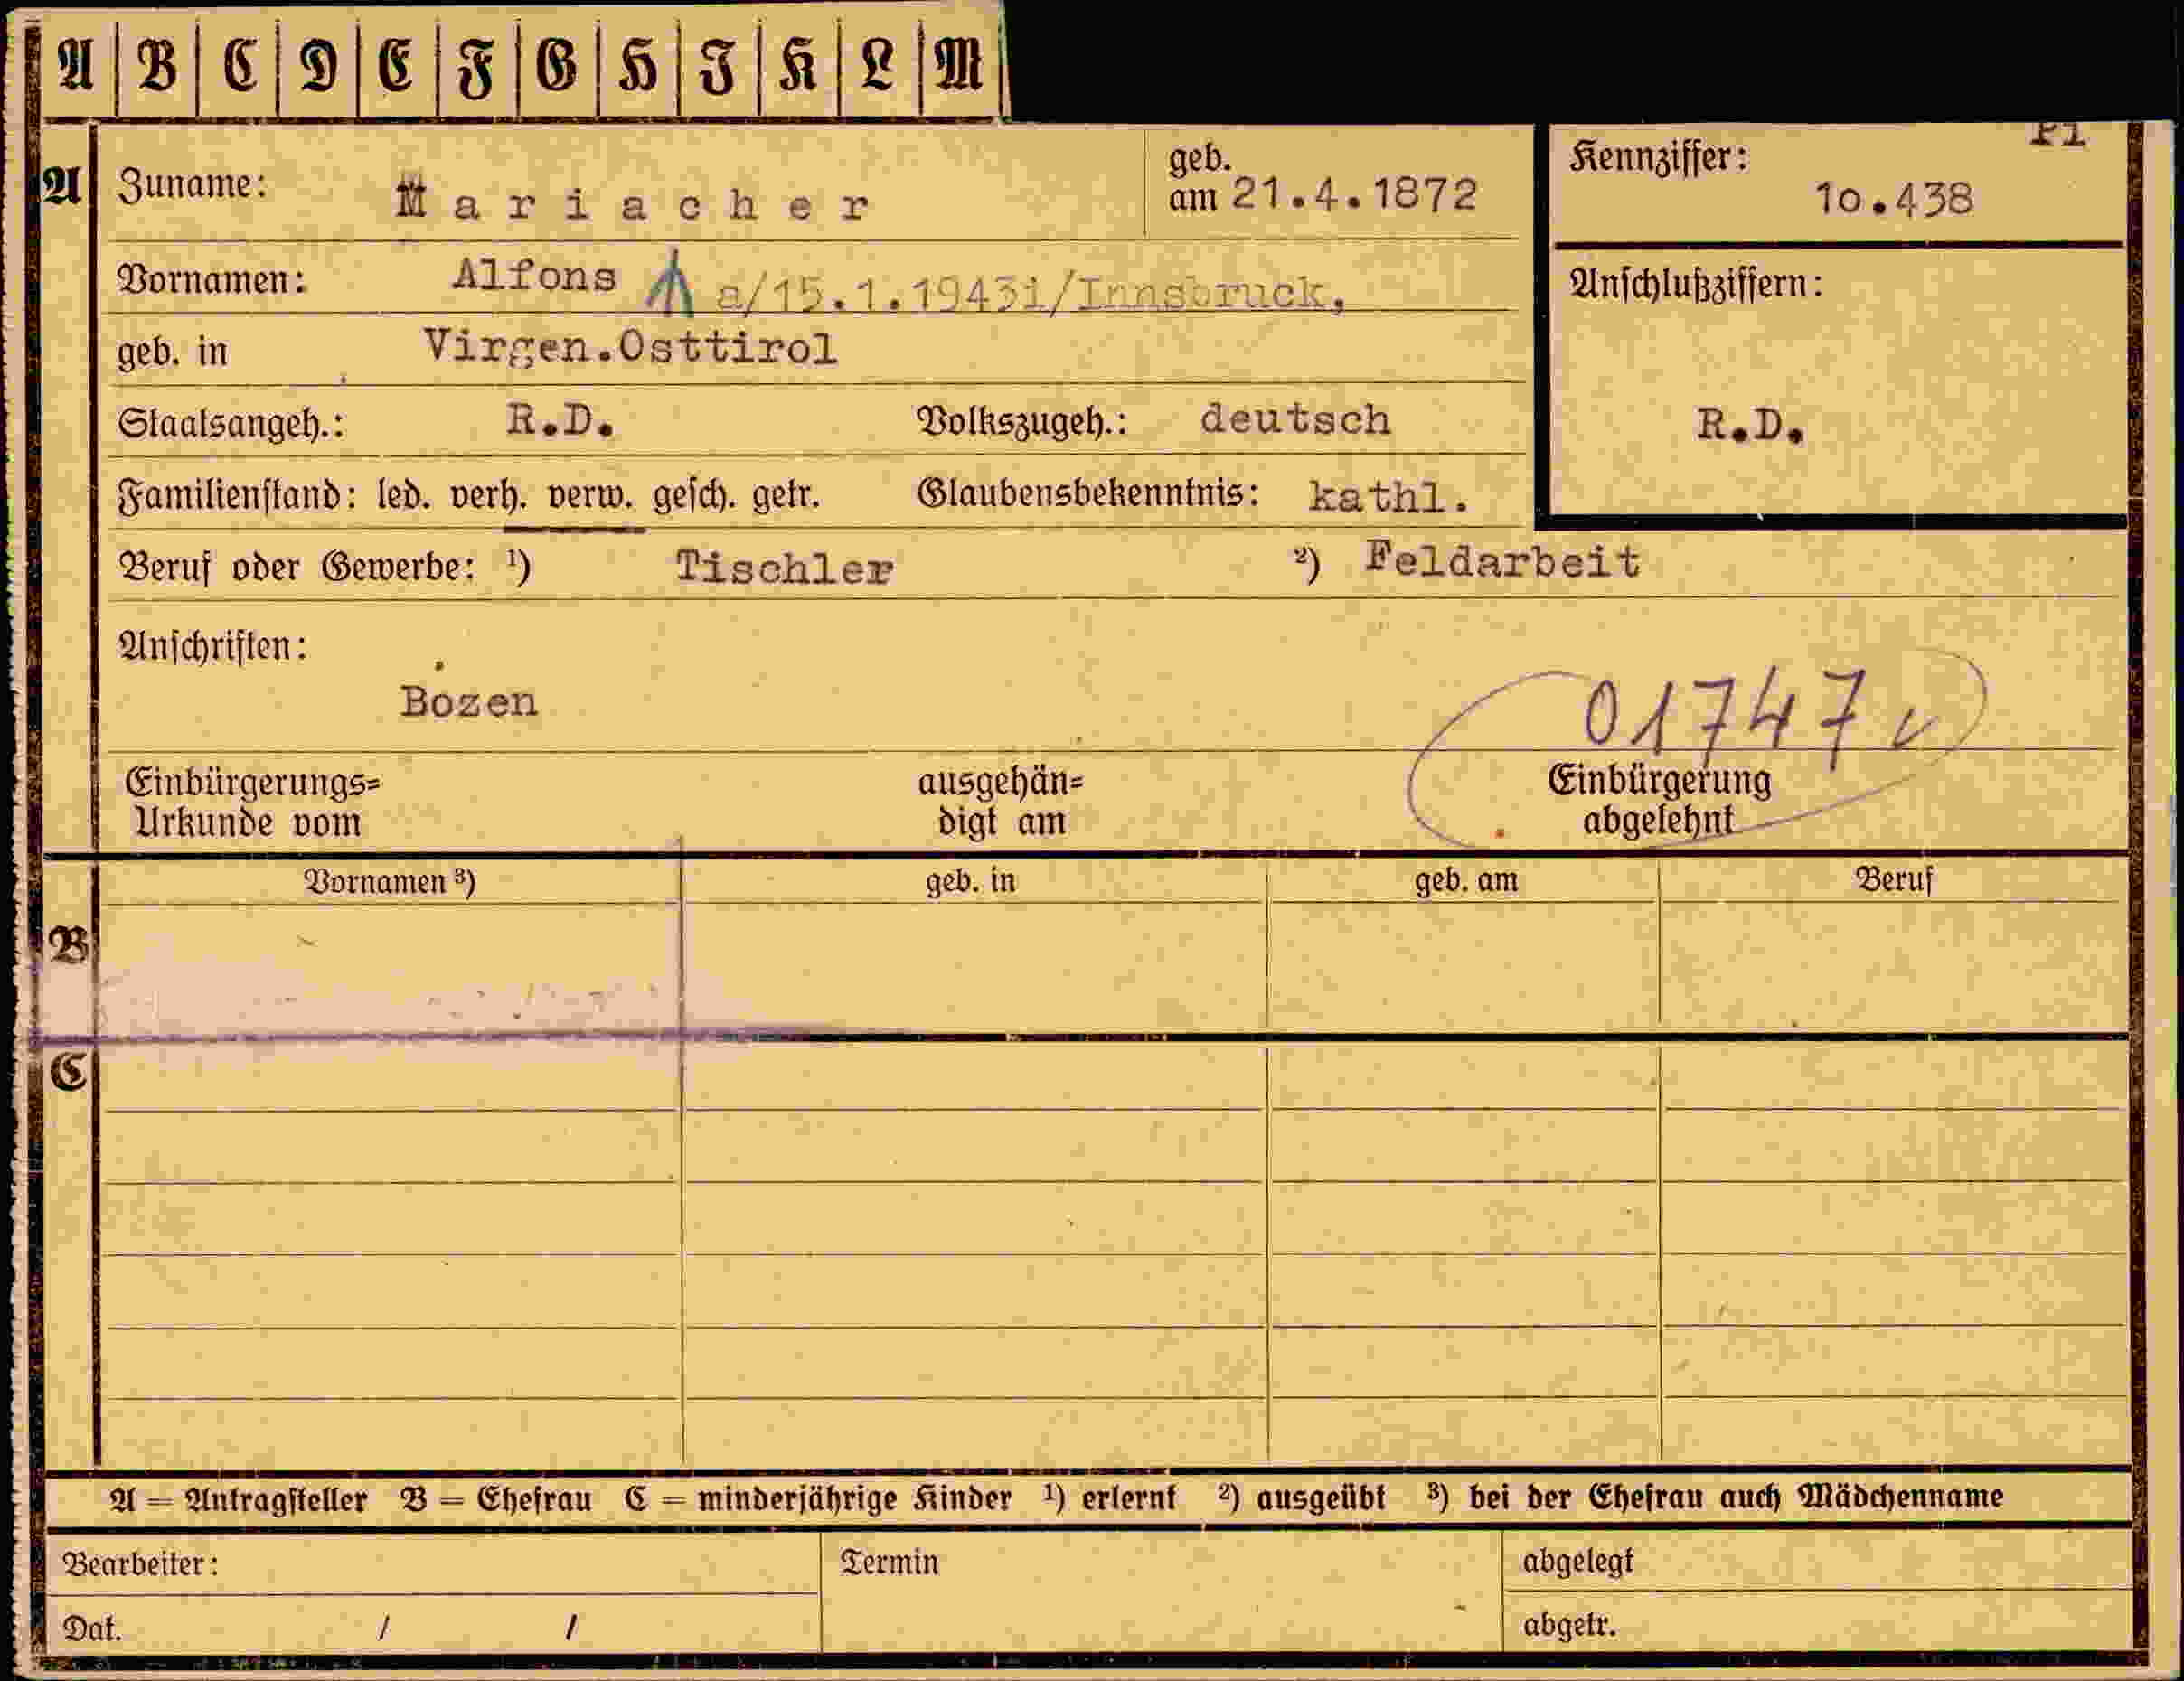 A B C D E F G H I K L M
Pi
A Zuname: Mariacher geb. am 21.4.1872 Kennziffer: 10.438
Vornamen: Alfons a/15.1.1943i/Innsbruck, Anschlußziffern:
geb. in Virgen.Osttirol
Staatsangeh.: R.D. Volkszugeh.: deutsch R.D.
Familienstand: led. verh. verw. gesch. getr. Glaubensbekenntnis: kathl.
Beruf oder Gewerbe: ¹) Tischler ²) Feldarbeit
Anschriften:
Bozen 01747
Einbürgerungs= ausgehän= Einbürgerung
Urkunde vom digt am abgelehnt
Vornamen ³) geb. in geb. am Beruf
B
C
A = Antragsteller B = Ehefrau C = minderjährige Kinder ¹) erlernt ²) ausgeübt ³) bei der Ehefrau auch Mädchenname
Bearbeiter: Termin abgelegt
Dat. / / abgetr.